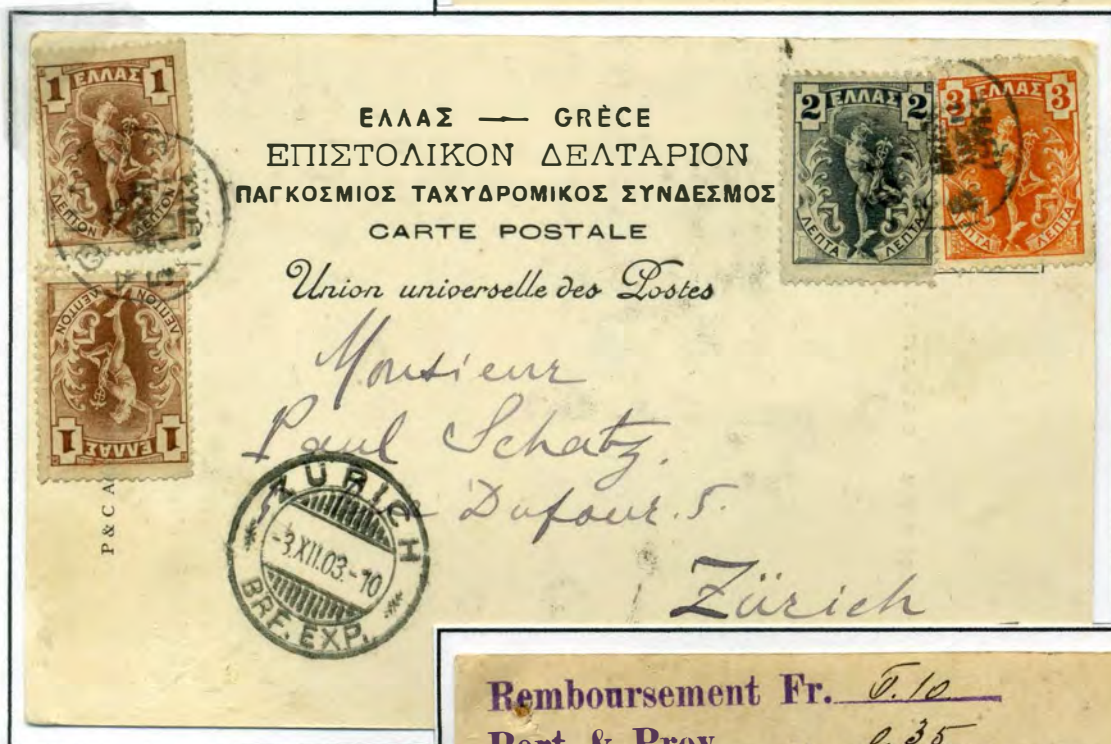 1 ΕΛΛΑΣ 1
ΛΕΠΤΟΝ ΛΕΠΤΟΝ
2 ΕΛΛΑΣ 2
ΛΕΠΤΑ ΛΕΠΤΑ
3 ΕΛΛΑΣ 3
ΛΕΠΤΑ ΛΕΠΤΑ
ΕΛΛΑΣ — GRÈCE
ΕΠΙΣΤΟΛΙΚΟΝ ΔΕΛΤΑΡΙΟΝ
ΠΑΓΚΟΣΜΙΟΣ ΤΑΧΥΔΡΟΜΙΚΟΣ ΣΥΝΔΕΣΜΟΣ
CARTE POSTALE
Union universelle des Postes
1 ΕΛΛΑΣ 1
ΛΕΠΤΟΝ ΛΕΠΤΟΝ
Monsieur
Paul Schatz.
Dufour. 5.
Zürich
P & C A
ZÜRICH
-3.XII.03.-10
BRF. EXP.
Remboursement Fr. 0.10
Port & Prov. 0.35